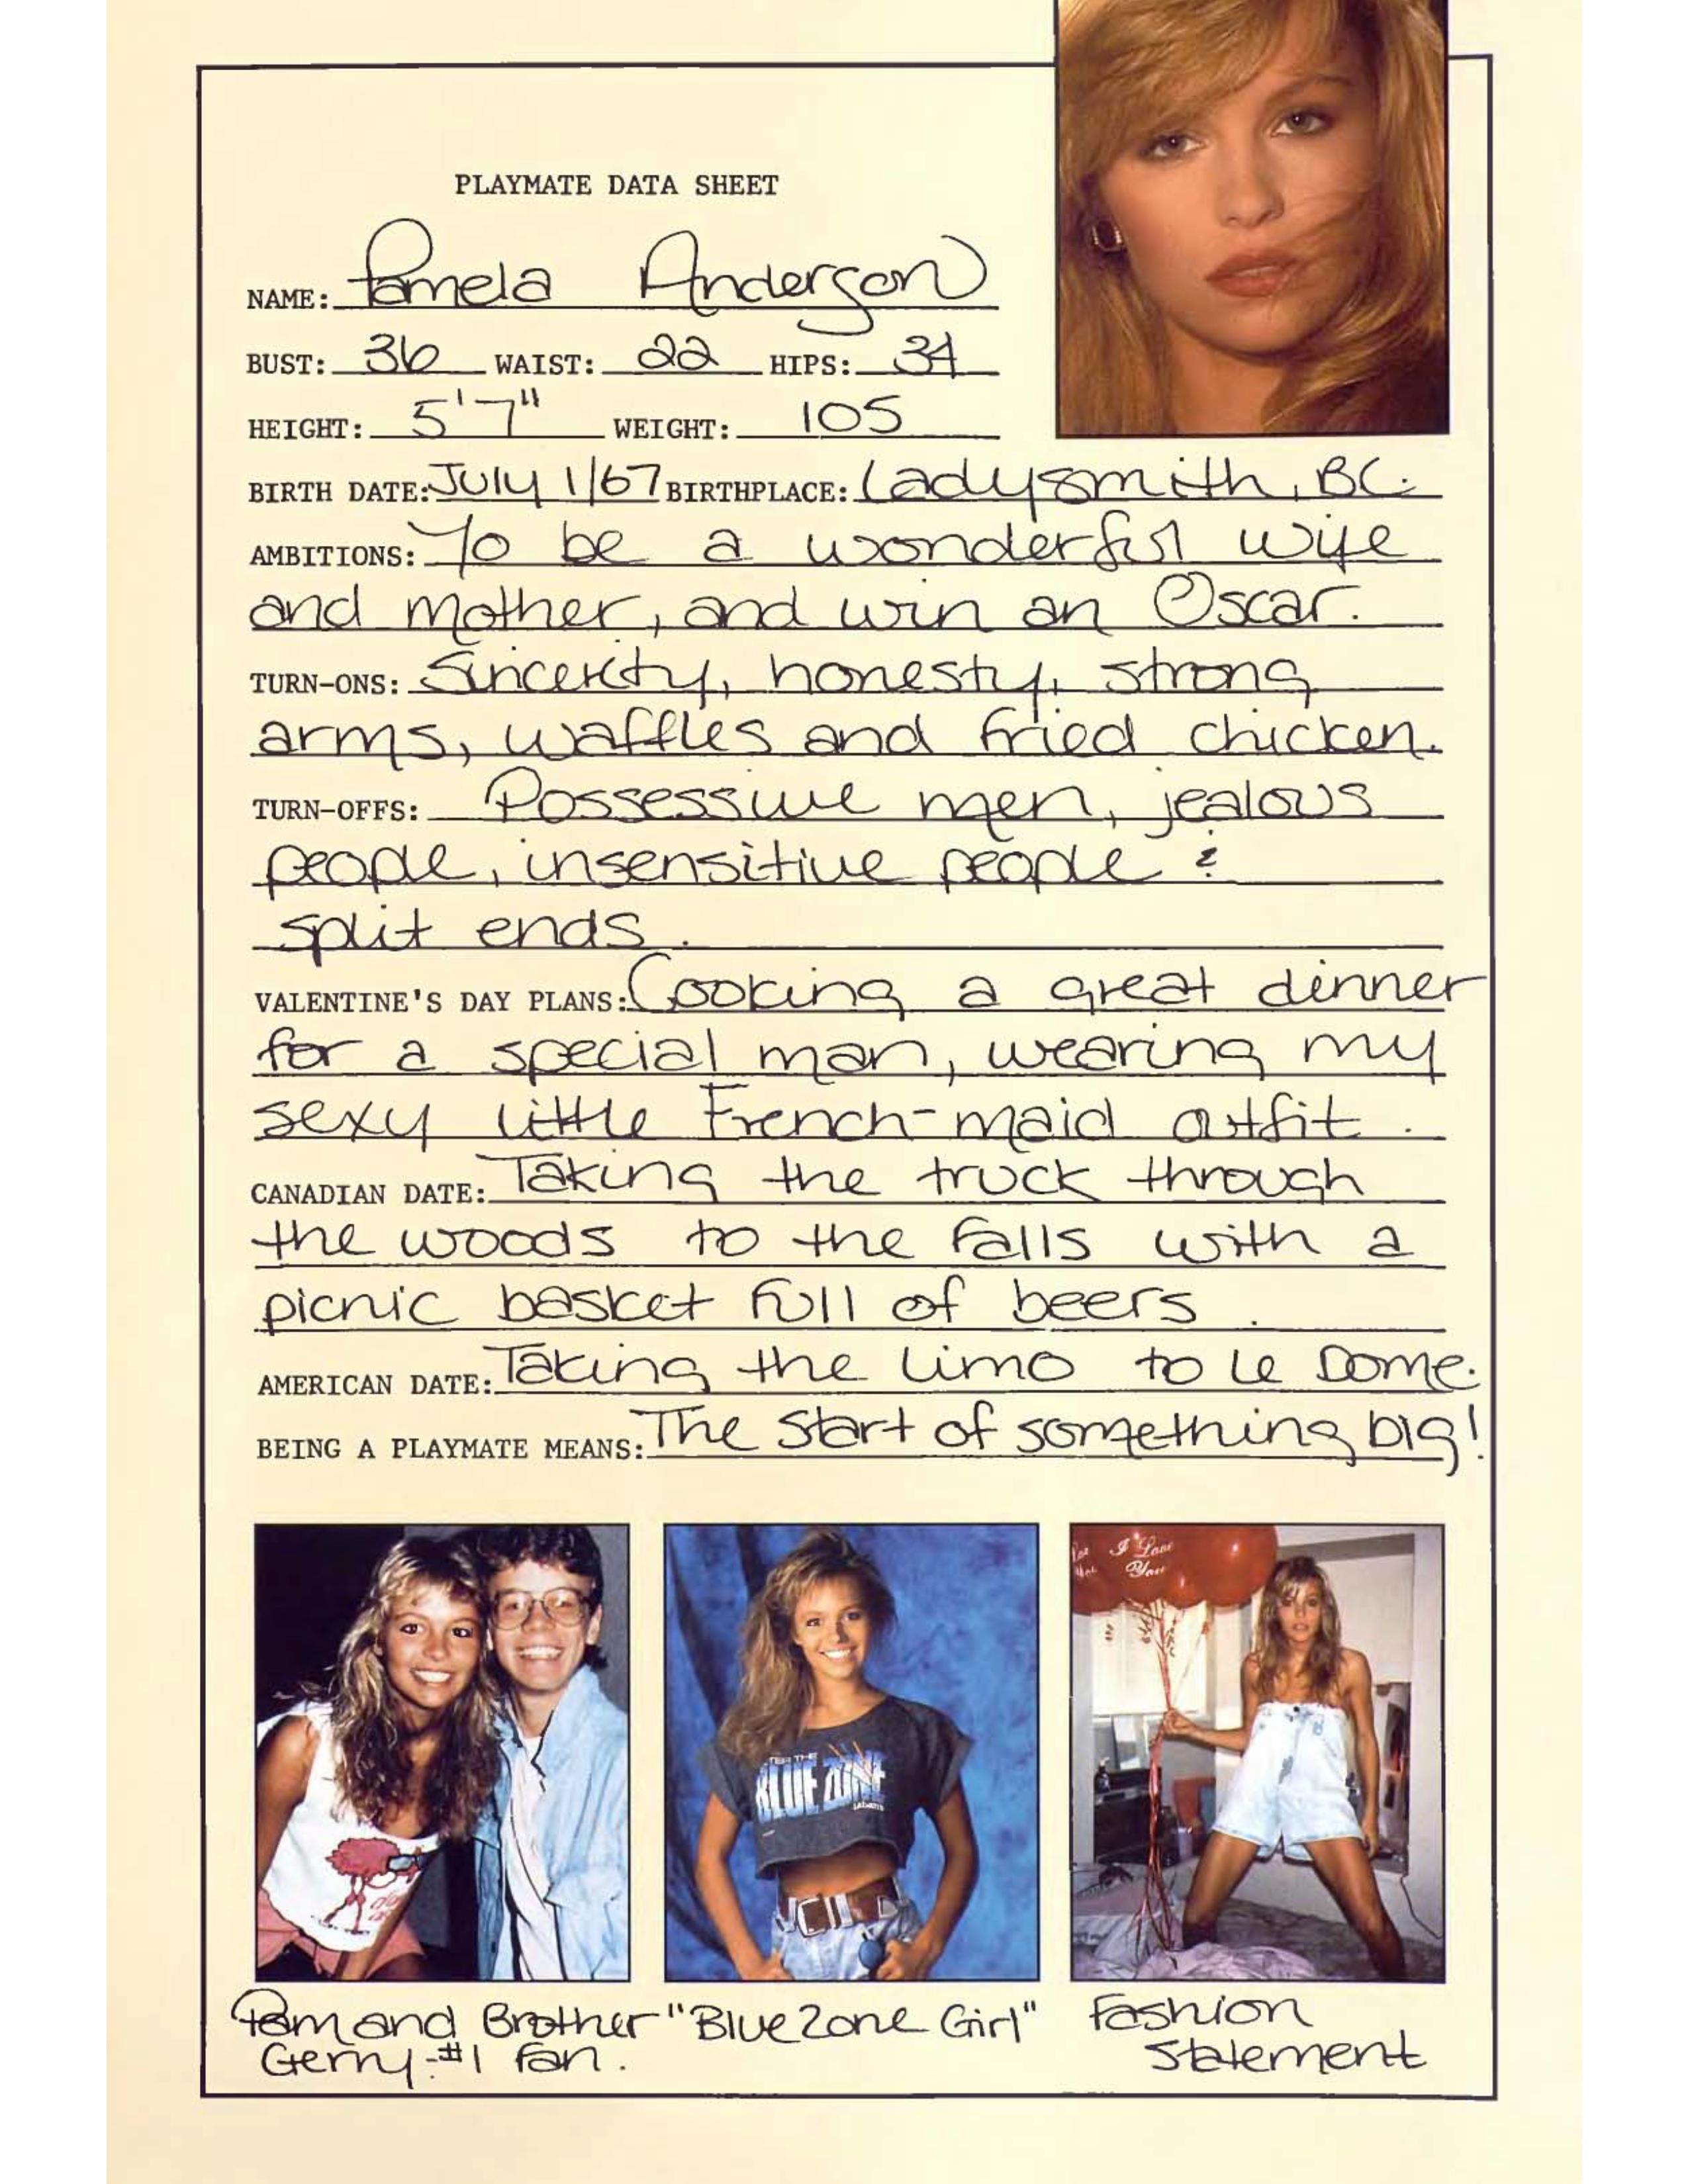 PLAYMATE DATA SHEET
NAME: Pamela Anderson
BUST: 36 WAIST: 22 HIPS: 34
HEIGHT: 5'7" WEIGHT: 105
BIRTH DATE: July 1/67 BIRTHPLACE: Ladysmith, BC.
AMBITIONS: To be a wonderful wife
and mother, and win an Oscar.
TURN-ONS: Sincerity, honesty, strong
arms, waffles and fried chicken.
TURN-OFFS: Possessive men, jealous
people, insensitive people &
split ends.
VALENTINE'S DAY PLANS: Cooking a great dinner
for a special man, wearing my
sexy little French-maid outfit.
CANADIAN DATE: Taking the truck through
the woods to the falls with a
picnic basket full of beers.
AMERICAN DATE: Taking the limo to Le Dome.
BEING A PLAYMATE MEANS: The start of something big!
I Love
You
BLUE ZONE
Pam and Brother
Gerry-#1 fan.
"Blue Zone Girl"
Fashion
Statement